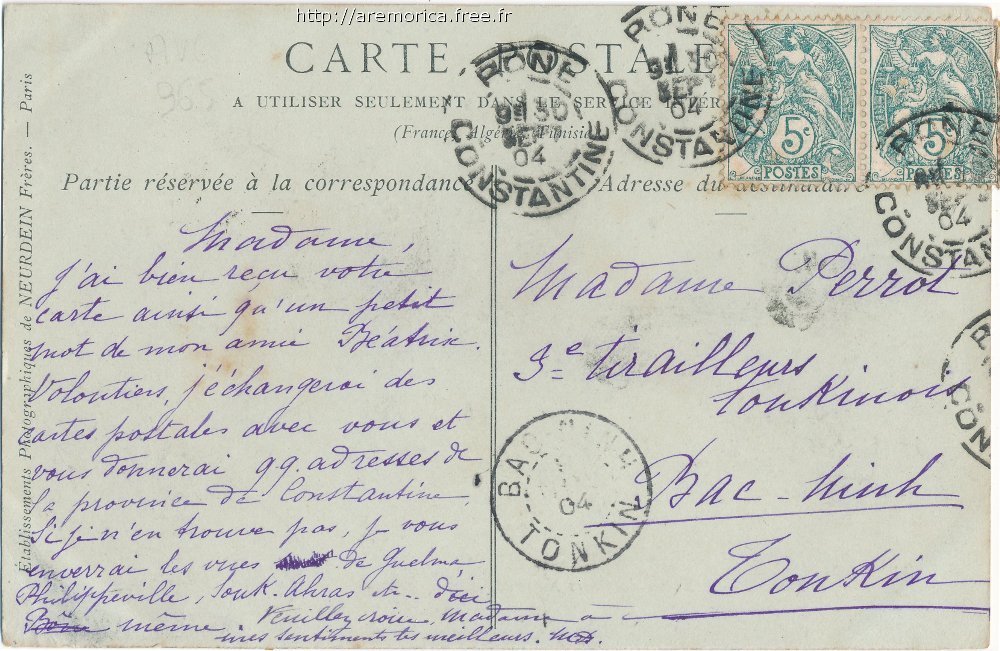 http://aremorica.free.fr
CARTE POSTALE
A UTILISER SEULEMENT DANS LE SERVICE INTER
(France, Algérie, Tunisie
Partie réservée à la correspondance
Adresse du destinataire
Etablissements Photographiques de NEURDEIN Frères. — Paris
BONE
9 30
SEPT
04
CONSTANTINE
BONE
SEPT
04
CONSTANTINE
5c
POSTES
5c
POSTES
BONE
SEPT
04
CONSTANTINE
CONST
Madame,
J'ai bien reçu votre
carte ainsi qu'un petit
mot de mon amie Béatrix.
Volontiers, j'échangerai des
cartes postales avec vous et
vous donnerai qq. adresses de
la province de Constantine
Si je n'en trouve pas, je vous
enverrai les vues de Guelma
Philippeville, Souk-Ahras etc. d'ici
Bone même. Veuillez croire Madame à
mes sentiments les meilleurs.
Madame Perrot
3e tirailleurs
tonkinois
Bac-Ninh
Tonkin
BAC-NINH
04
TONKIN